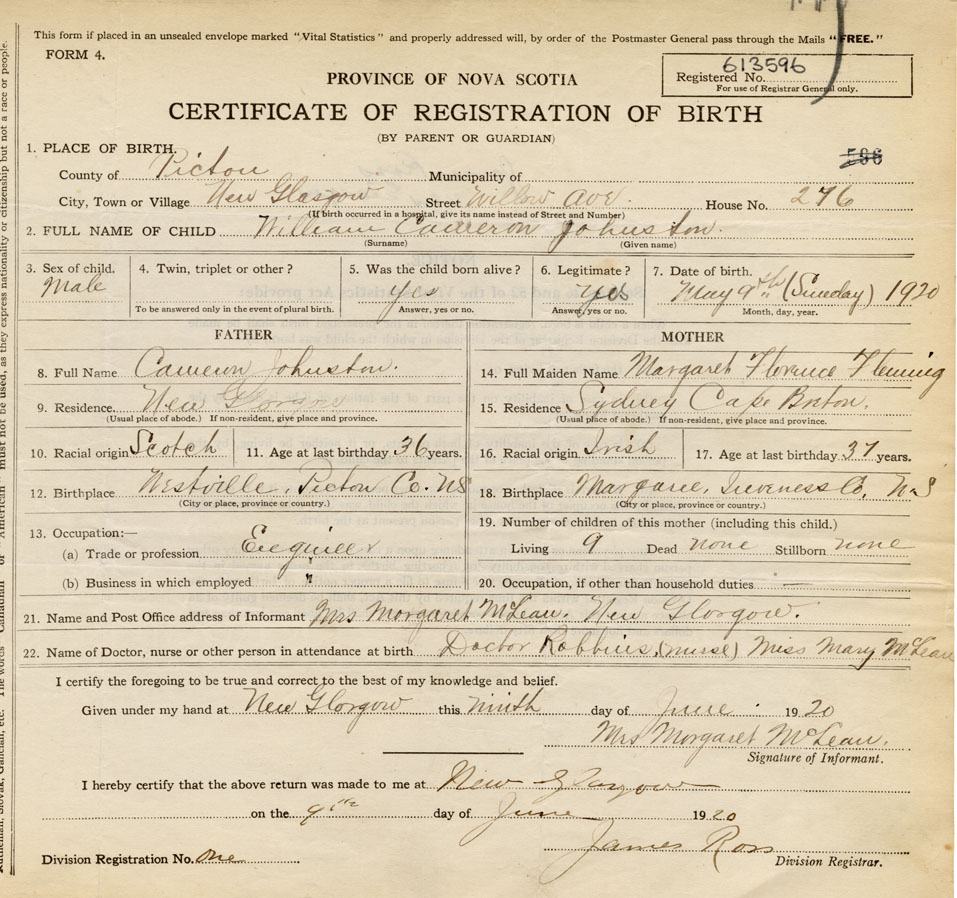 This form if placed in an unsealed envelope marked "Vital Statistics" and properly addressed will, by order of the Postmaster General pass through the Mails "FREE."
FORM 4.
613596
Registered No.
For use of Registrar General only.
PROVINCE OF NOVA SCOTIA
CERTIFICATE OF REGISTRATION OF BIRTH
(BY PARENT OR GUARDIAN)
596
1. PLACE OF BIRTH.
County of Picton Municipality of
City, Town or Village New Glasgow Street Willow Ave. House No. 276
(If birth occurred in a hospital, give its name instead of Street and Number)
2. FULL NAME OF CHILD William Cameron Johnston.
(Surname) (Given name)
3. Sex of child. 4. Twin, triplet or other? 5. Was the child born alive? 6. Legitimate? 7. Date of birth.
Male yes yes May 9th (Sunday) 1920
To be answered only in the event of plural birth. Answer, yes or no. Answer, yes or no. Month, day, year.
FATHER
8. Full Name Cameron Johnston.
9. Residence. New
(Usual place of abode.) If non-resident, give place and province.
10. Racial origin Scotch 11. Age at last birthday 36 years.
12. Birthplace Westville, Picton Co. NS
(City or place, province or country.)
13. Occupation:—
(a) Trade or profession
(b) Business in which employed "
MOTHER
14. Full Maiden Name Margaret Florence Fleming
15. Residence Sydney Cape Breton.
(Usual place of abode.) If non-resident, give place and province.
16. Racial origin Irish 17. Age at last birthday 37 years.
18. Birthplace Margaree, Inverness Co. N.S
(City or place, province or country.)
19. Number of children of this mother (including this child.)
Living 9 Dead none Stillborn none
20. Occupation, if other than household duties. —
21. Name and Post Office address of Informant Mrs Morgaret McLean. New Glorgow.
22. Name of Doctor, nurse or other person in attendance at birth Doctor Robbins. (nurse) Miss Mary McLean
I certify the foregoing to be true and correct to the best of my knowledge and belief.
Given under my hand at New Glorgow this ninth day of June 1920
Mrs Morgaret McLean.
Signature of Informant.
I hereby certify that the above return was made to me at New Glasgow
on the 9th day of June 1920
James Ross
Division Registration No. One Division Registrar.
must not be used, as they express nationality or citizenship but not a race or people.
The words Canadian or American
Ruthenian, Slovak, Galician, etc.